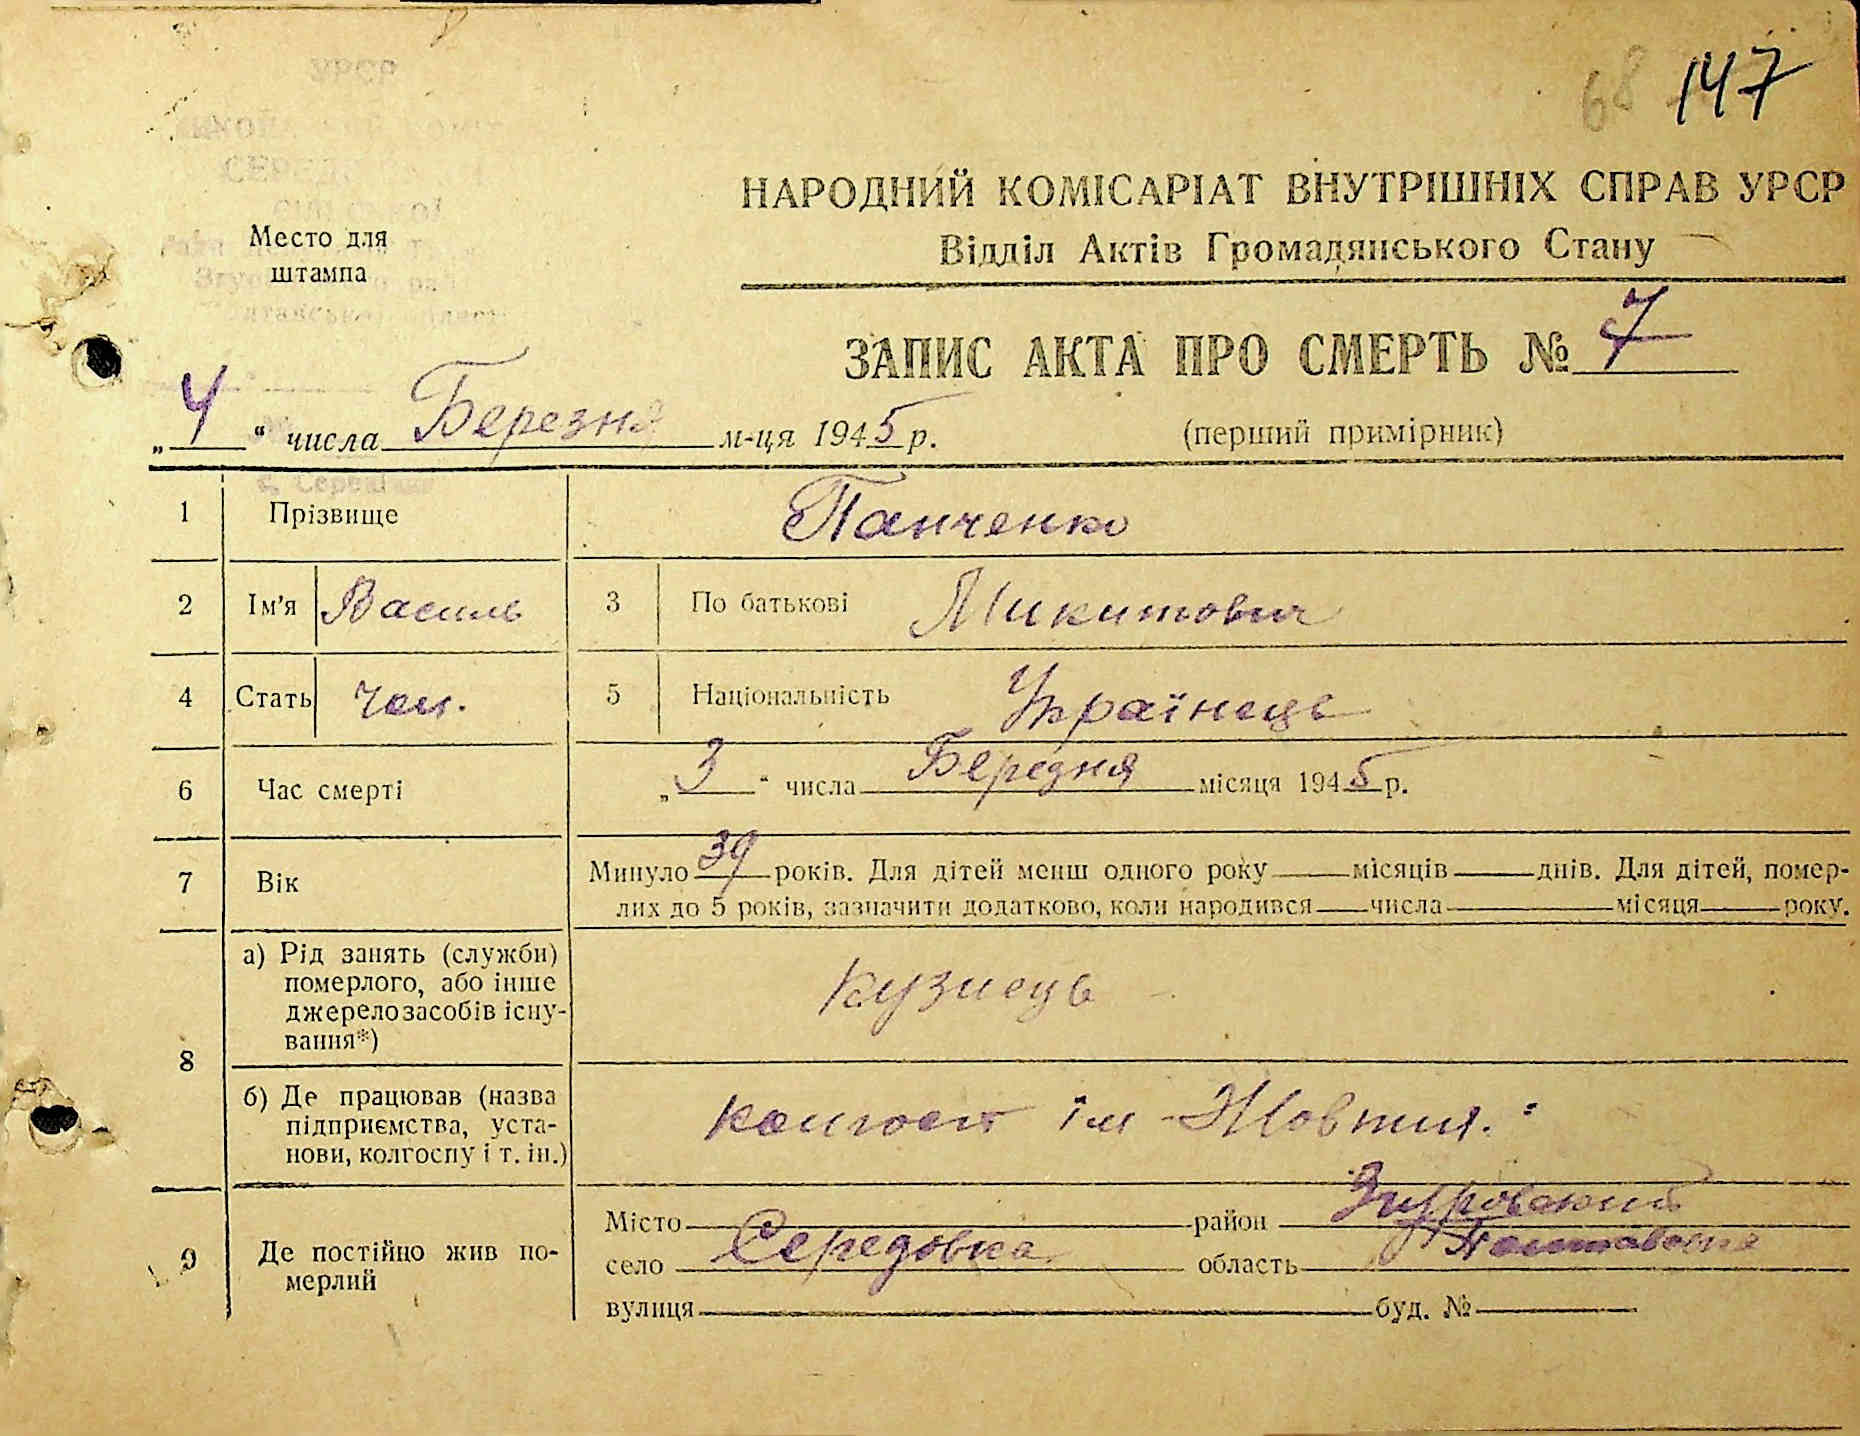 68 147
УРСР
СЕРЕД
Место для
штампа
НАРОДНИЙ КОМІСАРІАТ ВНУТРІШНІХ СПРАВ УРСР
Відділ Актів Громадянського Стану
ЗАПИС АКТА ПРО СМЕРТЬ № 7
„4“ числа Березня м-ця 1945 р.
(перший примірник)
1 Прізвище Панченко
2 Ім'я Василь 3 По батькові Микитович
4 Стать Чол. 5 Національність Українець
6 Час смерті „3“ числа Березня місяця 1945 р.
7 Вік Минуло 39 років. Для дітей менш одного року місяців днів. Для дітей, помер-
лих до 5 років, зазначити додатково, коли народився числа місяця року.
8 а) Рід занять (служби)
померлого, або інше
джерело засобів існу-
вання*)
Кузнець
б) Де працював (назва
підприємства, уста-
нови, колгоспу і т. ін.)
колгосп ім Жовтня.
9 Де постійно жив по-
мерлий
Місто район Згуровський
село Середовка область Полтавська
вулиця буд. №